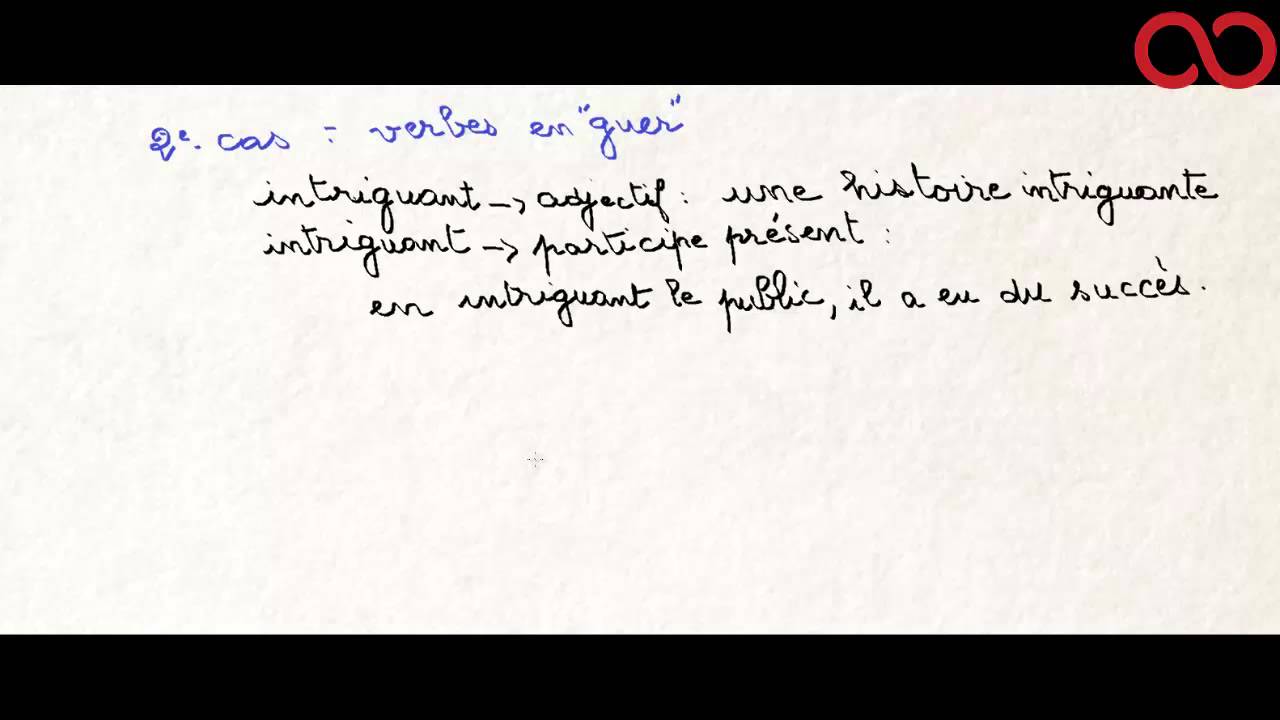 2e. cas : verbes en "guer"
intriguant → adjectif : une histoire intriguante
intriguant → participe présent :
en intriguant le public, il a eu du succès.